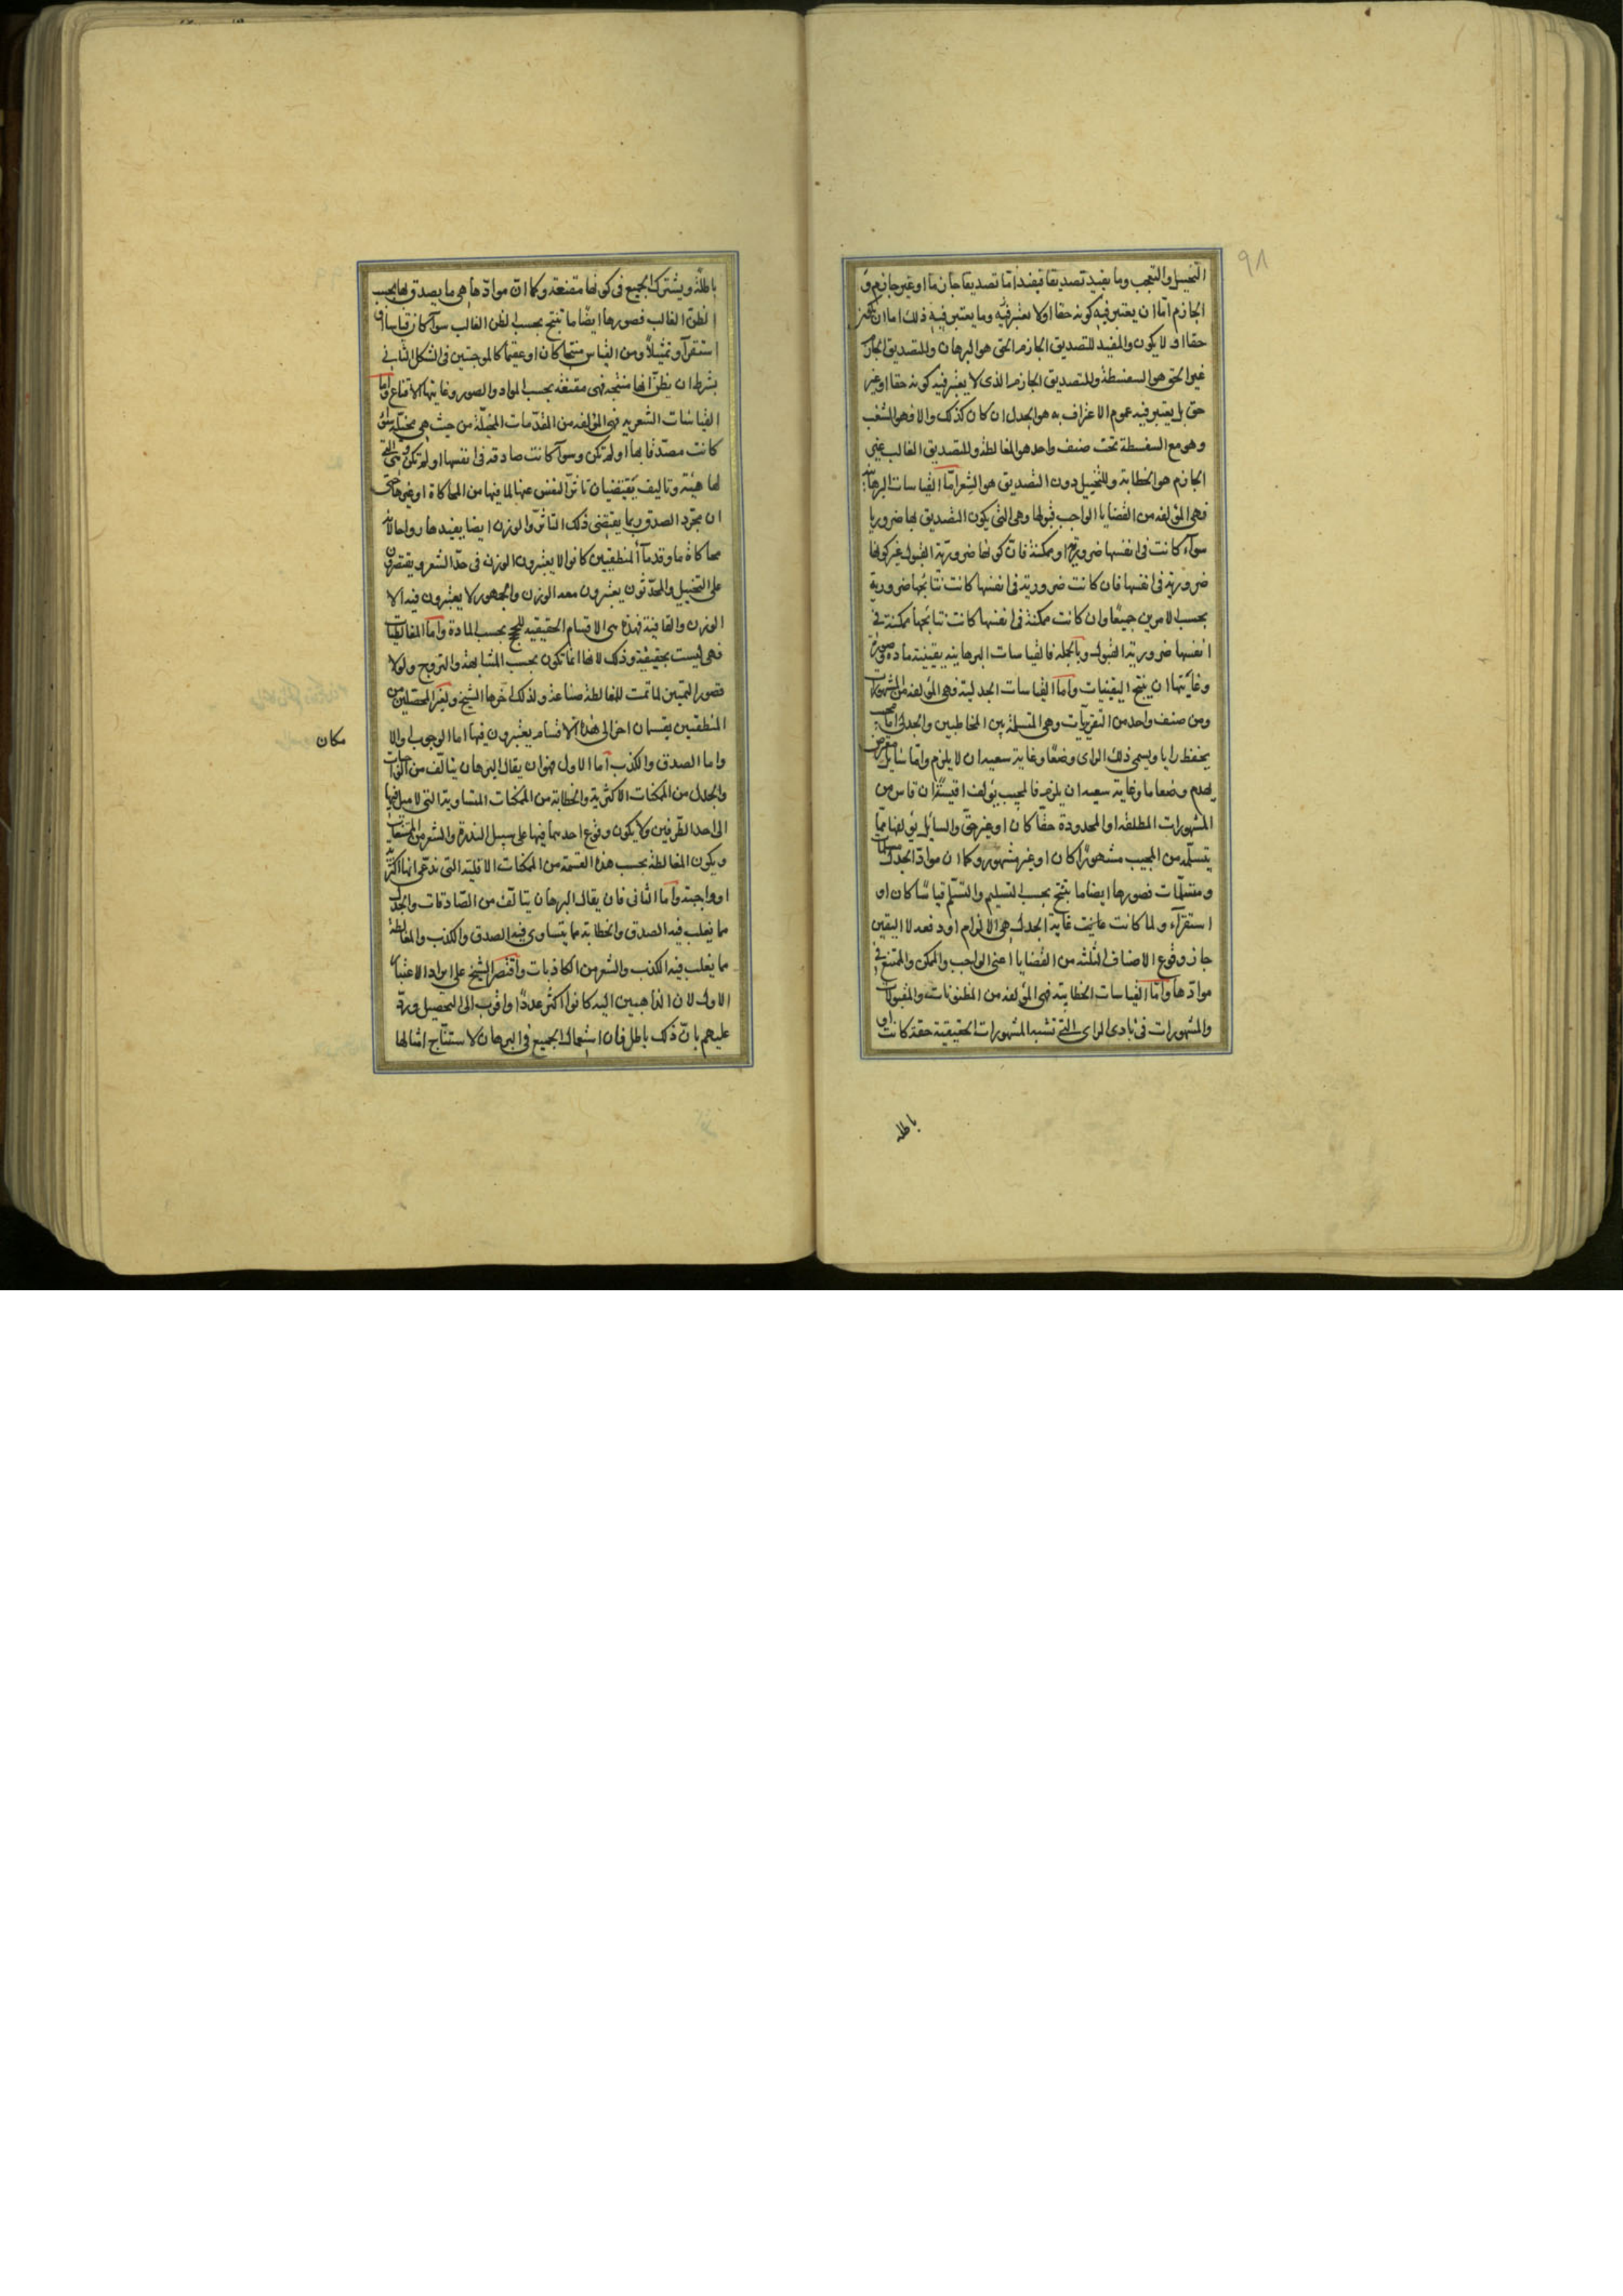 ٩٨
التخييل والتعجب وما يفيد تصديقا فيفيد اما تصديقا جازما او غير جازم و
الجازم اما ان يعتبر فيه كونه حقا اولا يعتبر فيه وما يعتبر فيه ذلك اما ان يكون
حقا او لا يكون والمفيد للتصديق الجازم الحق هو البرهان وللتصديق الجازم
غير الحق هو السفسطة وللتصديق الجازم الذى لا يعتبر فيه كونه حقا او غير
حق بل يعتبر فيه عموم الاعتراف به هو الجدل ان كان كذلك والا فهو الشغب
وهو مع السفسطة تحت صنف واحد هو المغالطة وللتصديق الغالب غير
الجازم هو الخطابة وللتخييل دون التصديق هو الشعر اما القياسات البرهانية
فهى المؤلفة من القضايا الواجب قبولها وهى التى يكون التصديق بها ضروريا
سواء كانت فى انفسها ضرورية او ممكنة فان كونها ضرورية القبول غير كونها
ضرورية فى انفسها فان كانت ضرورية فى انفسها كانت نتائجها ضرورية
بحسب الامرين جميعا وان كانت ممكنة فى انفسها كانت نتائجها ممكنة فى
انفسها ضرورية القبول وبالجملة فالقياسات البرهانية يقينية مادة وصورة
وغايتها ان ينتج اليقينيات واما القياسات الجدلية فهى المؤلفة من المشهورات
ومن صنف واحد من التقريريات وهى المتسلمة بين المخاطبين والجدلى اما مجيب
يحفظ رايا ويسمى ذلك الراى وضعا وغاية سعيه ان لا يلزم واما سايل معترض
يهدم وضعا ما وغاية سعيه ان يلزم فالمجيب يؤلف اقيسته ان قاس من
المشهورات المطلقة او المحدودة حقا كان او غير حق والسايل يؤلفها مما
يتسلمه من المجيب مشهورا كان او غير مشهور وكما ان مواد الجدل مسلمات
ومتسلمات فصورها ايضا ما ينتج بحسب التسليم والتسلم قياسا كان او
استقراء ولما كانت غاية الجدل هى الالزام او دفعه لا اليقين
جاز وقوع الاصناف الثلثة من القضايا اعنى الواجب والممكن والممتنع فى
موادها واما القياسات الخطابية فهى المؤلفة من المظنونات والمقبولات
والمشهورات فى بادى الراى التى تشبه المشهورات الحقيقية حقة كانت او
باطله
باطلة ويشترك الجميع فى كونها مقنعة وكما ان موادها هى ما يصدق بها بحسب
الظن الغالب فصورها ايضا ما تنتج بحسب الظن الغالب سواء كان قياسا او
استقراء او تمثيلا ومن القياس منتجا كان او عقيما كالموجبتين فى الشكل الثانى
بشرط ان يظن انها منتجة فهى مقنعة بحسب المواد والصور وغايتها الاقناع واما
القياسات الشعرية فهى المؤلفة من المقدمات المخيلة من حيث هى مخيلة سواء
كانت مصدقا بها او لم تكن وسواء كانت صادقة فى انفسها او لم تكن وهى التى
لها هيئة وتاليف يقتضيان تاثر النفس عنها لما فيها من المحاكاة او غيرها حتى
ان مجرد الصدق ربما يقتضى ذلك التاثر والوزن ايضا يفيدها رواجا لانه
محاكاة ما وقدماء المنطقيين كانوا لا يعتبرون الوزن فى حد الشعر ويقتصرون
على التخييل والمحدثون يعتبرون معه الوزن والجمهور لا يعتبرون فيه الا
الوزن والقافية فهذه هى الاقسام الحقيقية للحجج بحسب المادة واما المغالطيات
فهى ليست بحقيقية وذلك لانها انما تكون بحسب المشابهة والترويج ولولا
قصور التمييز لما تمت للمغالطة صناعة ولذلك اخرها الشيخ ولغير المحصلين من
المنطقيين تقسيمان اخر الى هذه الاقسام يعتبرون فيها اما الوجوب والا
مكان
واما الصدق والكذب اما الاول فهو ان يقال البرهان يتالف من الواجبات
والجدل من الممكنات الاكثرية والخطابة من الممكنات المتساوية التى لا ميل فيها
الى احد الطرفين ولا يكون وقوع احديهما فيها على سبيل الندرة والشعر من الممتنعات
ويكون المغالطة بحسب هذه القسمة من الممكنات الاقلية التى تدعى انها اكثرية
او واجبة واما الثانى فان يقال البرهان يتالف من الصادقات والجدل
مما يغلب فيه الصدق والخطابة مما يتساوى فيه الصدق والكذب والمغالطة
مما يغلب فيه الكذب والشعر من الكاذبات واقتصر الشيخ على ايراد الاعتبار
الاول لان الذاهبين اليه كانوا اكثر عددا واقرب الى التحصيل ورد
عليهم بان ذلك باطل فان استعمال الجميع فى البرهان لاستنتاج امثالها